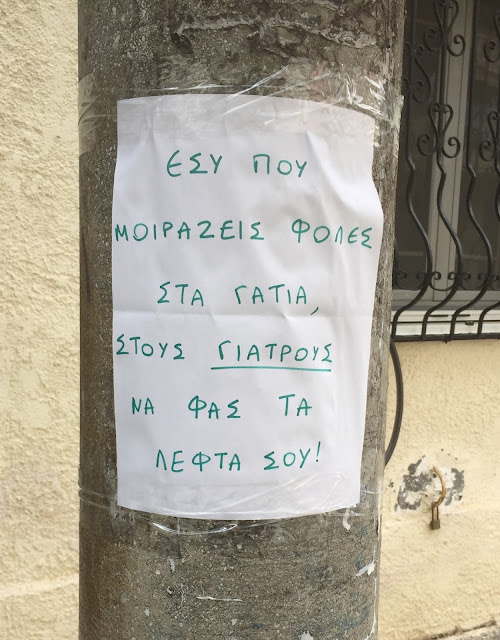 ΕΣΥ ΠΟΥ
ΜΟΙΡΑΖΕΙΣ ΦΟΛΕΣ
ΣΤΑ ΓΑΤΙΑ,
ΣΤΟΥΣ ΓΙΑΤΡΟΥΣ
ΝΑ ΦΑΣ ΤΑ
ΛΕΦΤΑ ΣΟΥ!